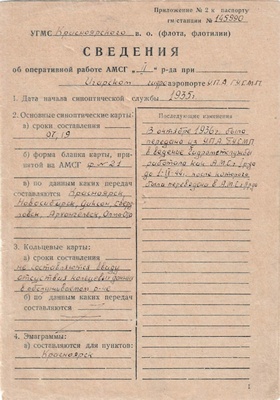 Приложение № 2 к паспорту
г/м станция № 145990
УГМС Красноярского в. о. (флота, флотилии)
СВЕДЕНИЯ
об оперативной работе АМСГ „I“ р-да при
Игарском аэропорте НПА ГУСМП
1. Дата начала синоптической службы 1935г.
2. Основные синоптические карты:
а) сроки составления
07, 19
б) форма бланка карты, при-
нятой на АМСГ ф № 21
в) по данным каких передач
составляются Красноярск,
Новосибирск, Диксон, Сверд-
ловск, Архангельск,
3. Кольцевые карты:
а) сроки составления
не составляются ввиду
отсутствия кольцевой
в обслуживаемом р-не
б) по данным каких передач
составляются
4. Эмаграммы:
а) составляются для пунктов:
Красноярск
Последующие изменения
В октябре 1936г. была
передана из НПА ГУСМП
в ведение Гидрометслужбы
работала как АМСГ I р-да
до 1944г. после которого
была переведена в АМСГ
1